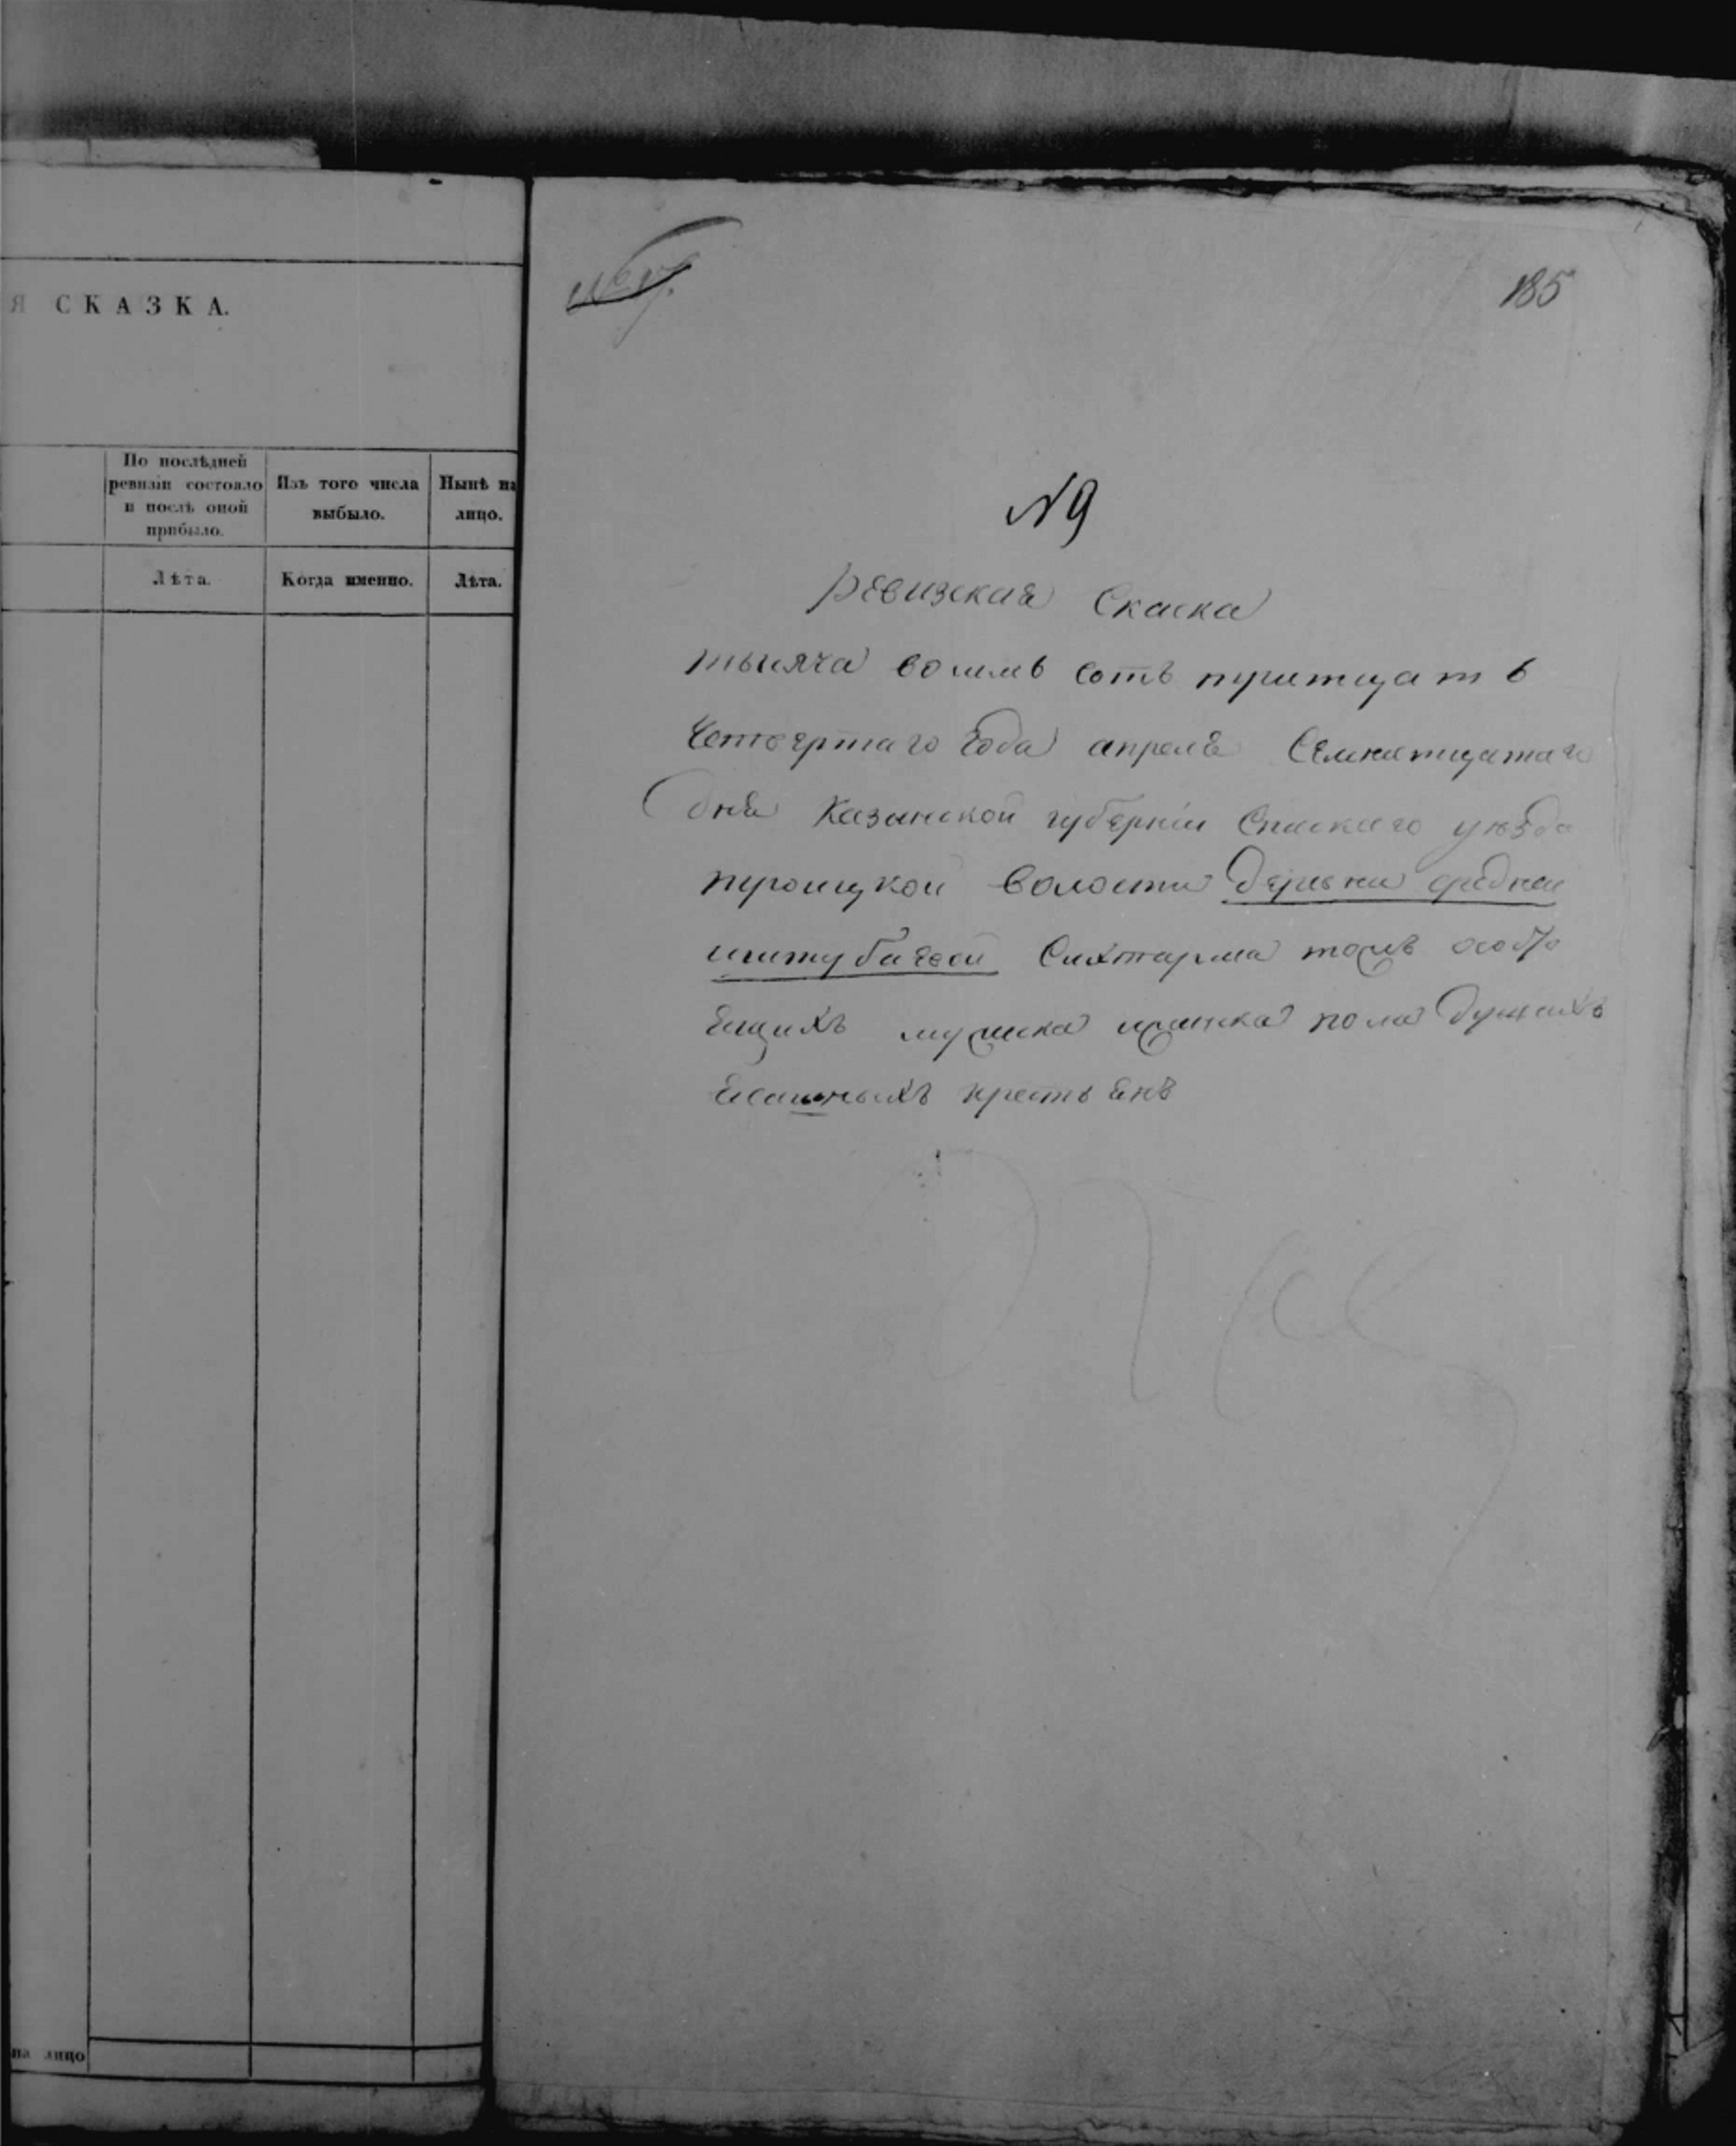 Я СКАЗКА.
По послѣдней ревизіи состояло и послѣ оной прибыло.
Изъ того числа выбыло.
Нынѣ на лицо.
Лѣта.
Когда именно.
Лѣта.
на лицо
185
N 9
ревизская Скаска
тысяча восимь сотъ тритцать
Четвертаго года апреля Семнатцатаго
дня Казанской губерніи Спаскаго уѣзда
троицкой волости деревни средней
тожъ
мужска иженска пола душахъ
Ясашныхъ крестьянъ